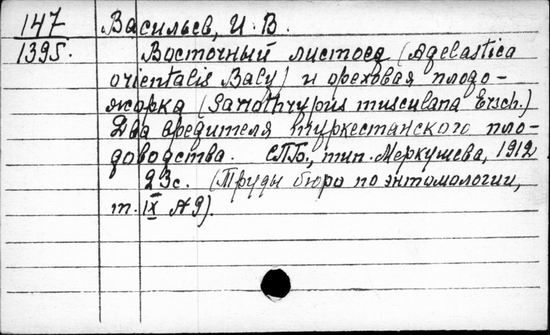 147 Васильев, И. В.
1395. Восточный листоед (Agelastica
orientalis Baly) и ореховая плодо-
жорка (Sarrothrypus musculana Ersch.)
Два вредителя туркестанского пло-
доводства. СПБ., тип. Меркушева, 1912
23с. (Труды бюро по энтомологии,
т. IX №9).